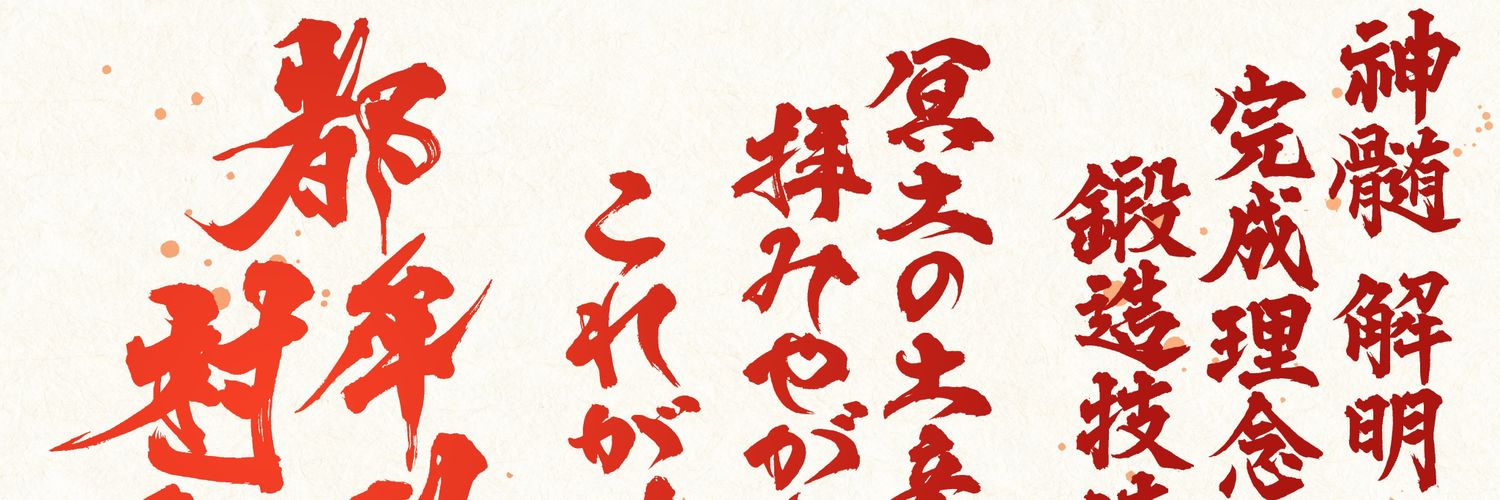 神髄 解明
完成理念
鍛造技
冥土の土
拝みやが
これが
都牟
村